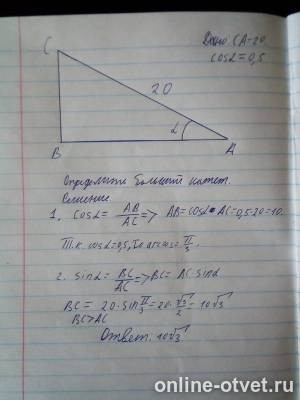 Дано: CA=20
cosα=0,5
C
20
α
B
A
Определить больший катет.
Решение.
1. cosα = AB/AC => AB=cosα·AC=0,5·20=10.
Т.к. cosα=0,5, то π/3.
2. sinα = BC/AC => BC = AC·sinα
BC = 20·sin π/3 = 20·√3/2 = 10√3
BC>AC
Ответ: 10√3
online-otvet.ru